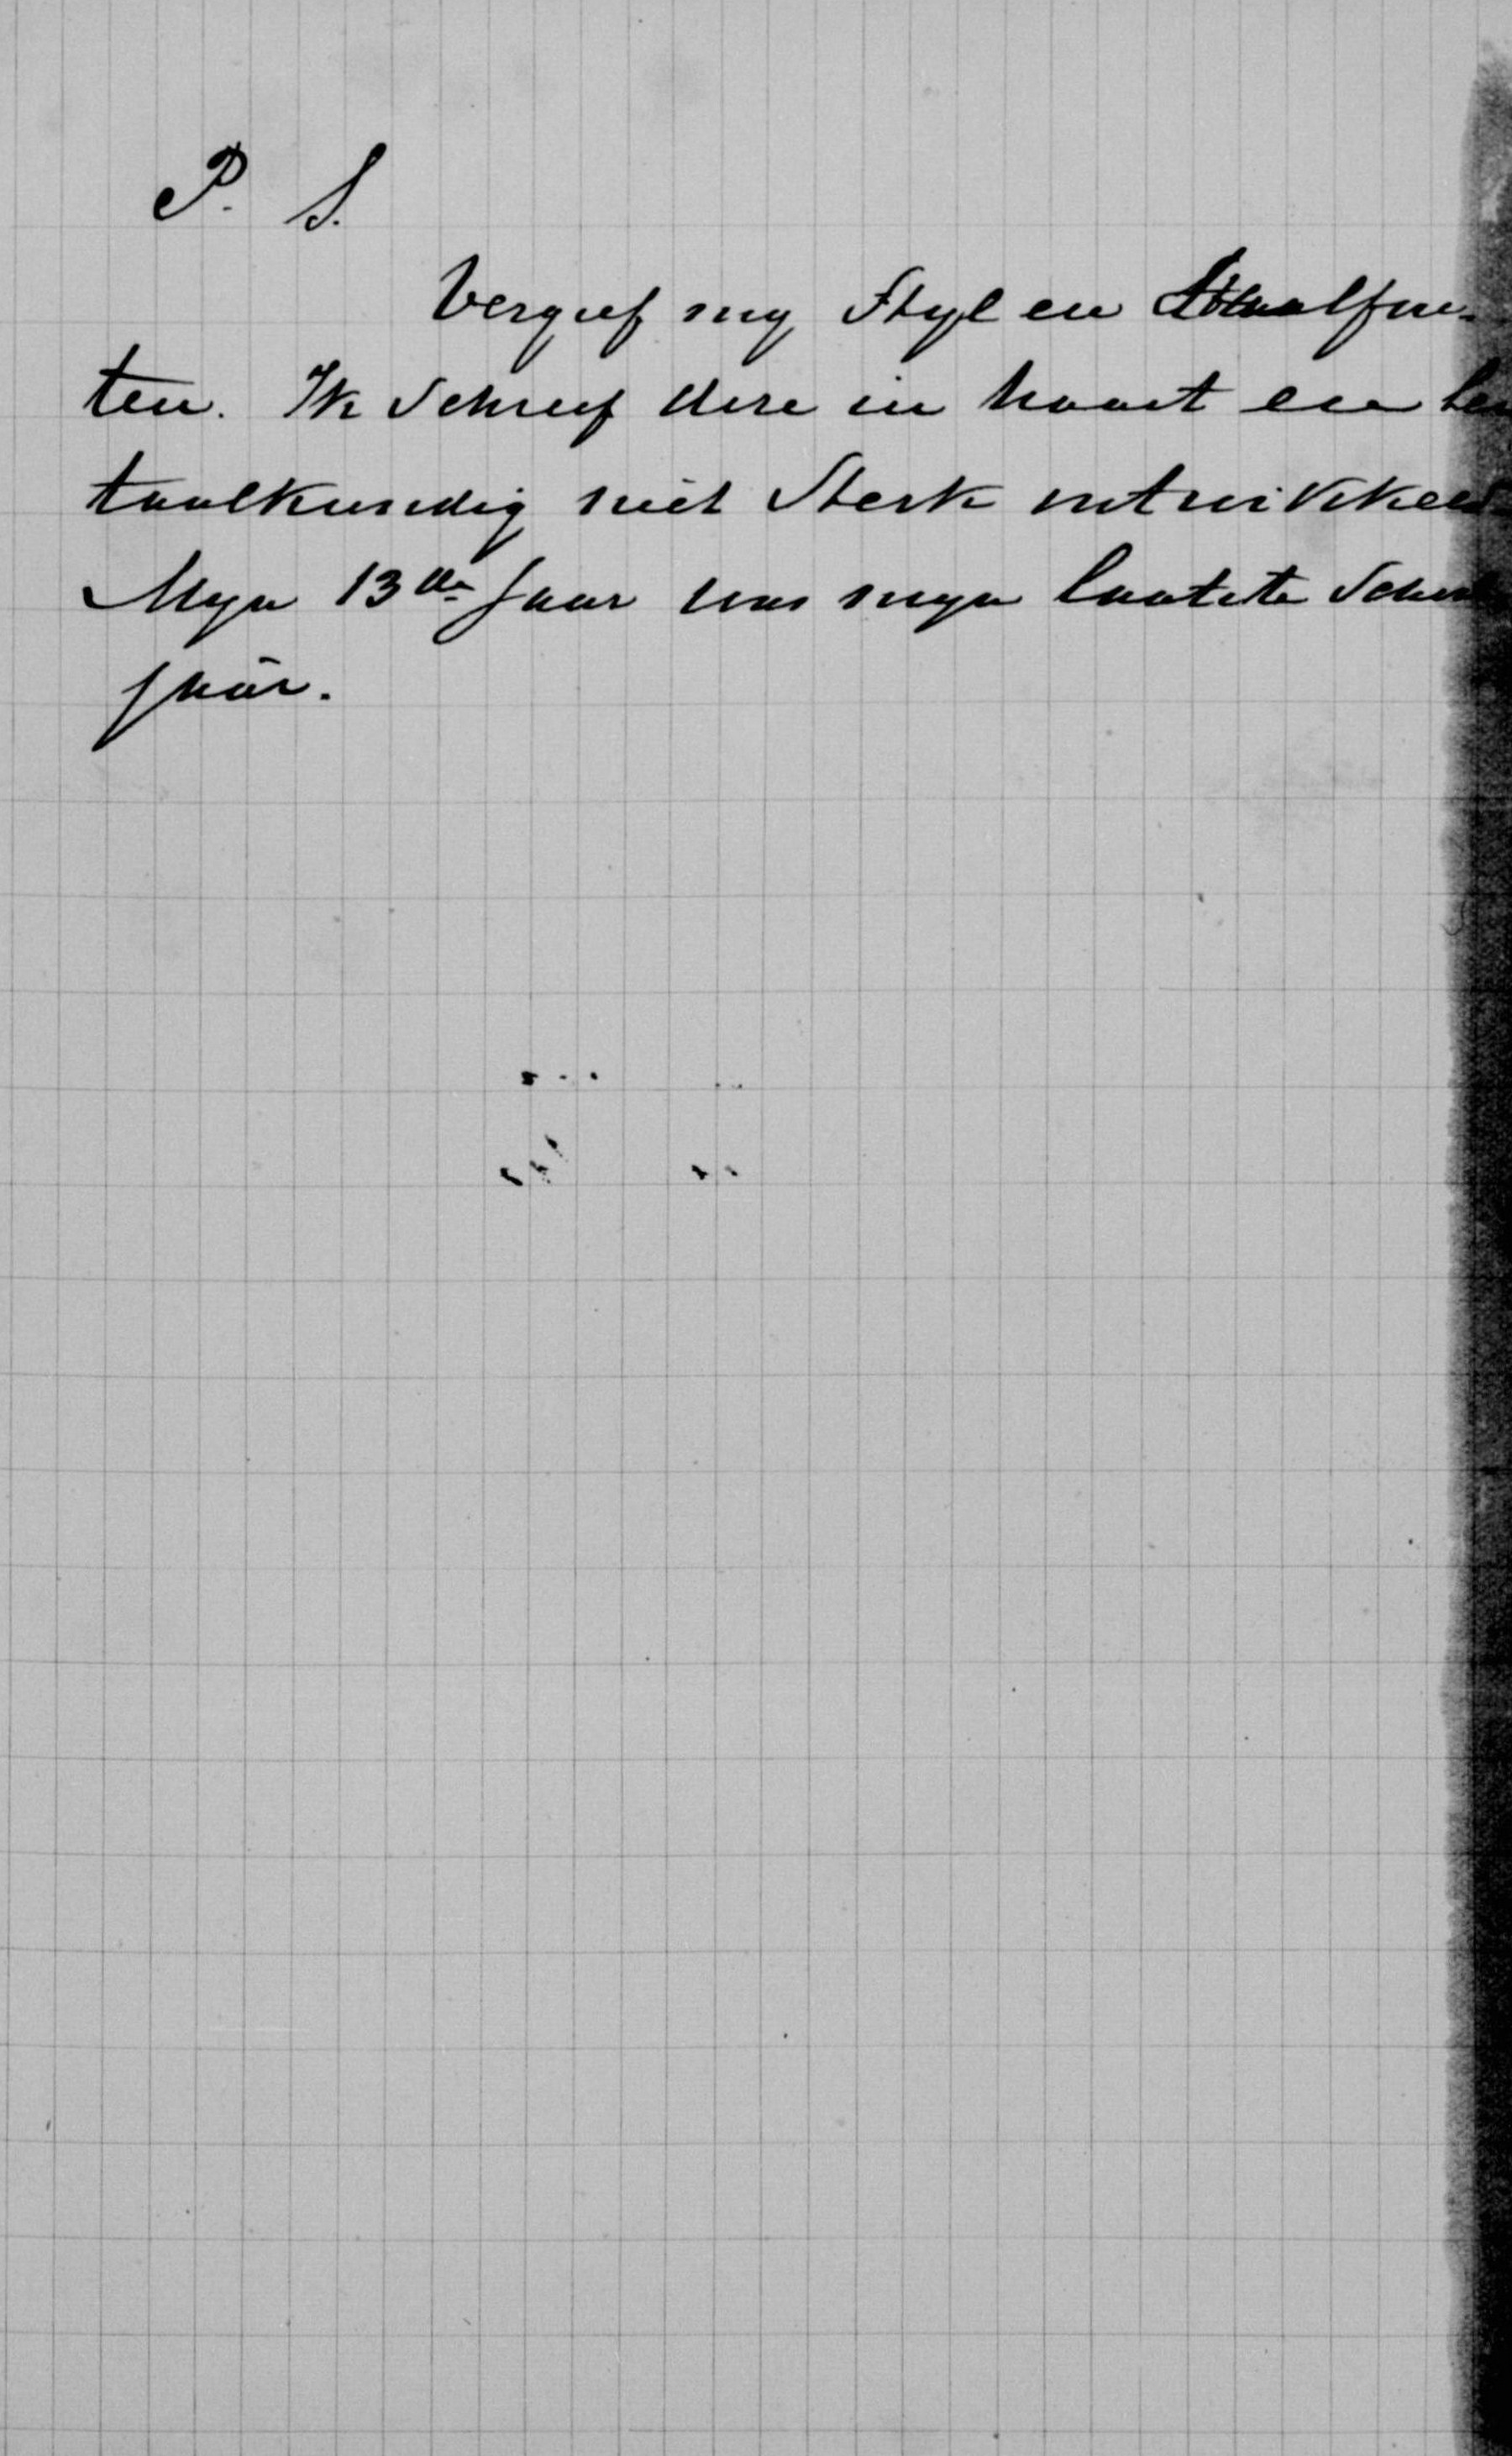 P. S.
Vergeef my Styl en taalfou-
ten. Ik schreef deze in haast en ben
taalkundig niet sterk ontwikkeld
Myn 13de Jaar was myn laatste School
jaar.